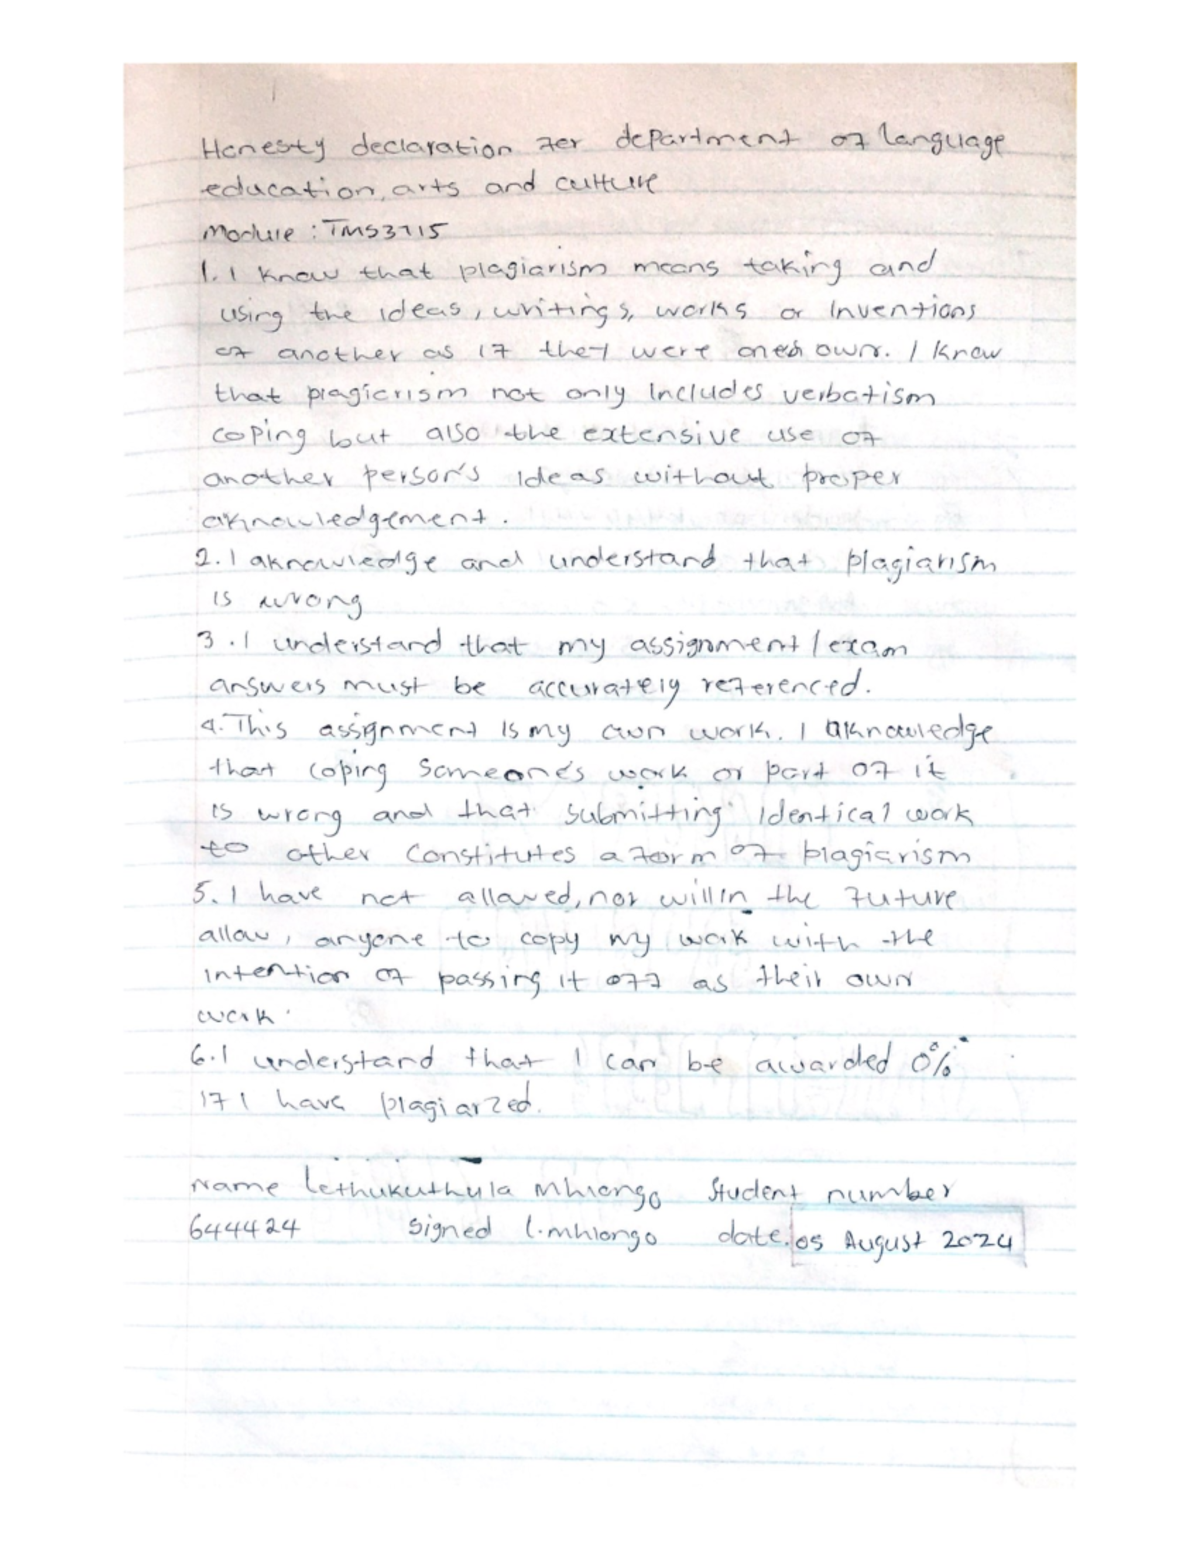 Honesty declaration for department of language
education, arts and culture
Module : TMS3715
1. I know that plagiarism means taking and
using the ideas, writings, works or Inventions
of another as if they were ones own. I know
that plagiarism not only Includes verbatism
coping but also the extensive use of
another person's Ideas without proper
aknowledgement.
2. I aknowledge and understand that plagiarism
is wrong
3. I understand that my assignment/exam
answers must be accurately referenced.
4. This assignment Is my own work. I aknowledge
that coping Someone's work or part of it
is wrong and that submitting Identical work
to other Constitutes a form of plagiarism
5. I have not allowed, nor will in the future
allow, anyone to copy my work with the
Intention of passing it off as their own
work.
6. I understand that I can be awarded 0%
if I have plagiarzed.
Name Lethukuthula Mhlongo Student number
644424 Signed L.mhlongo date. 05 August 2024